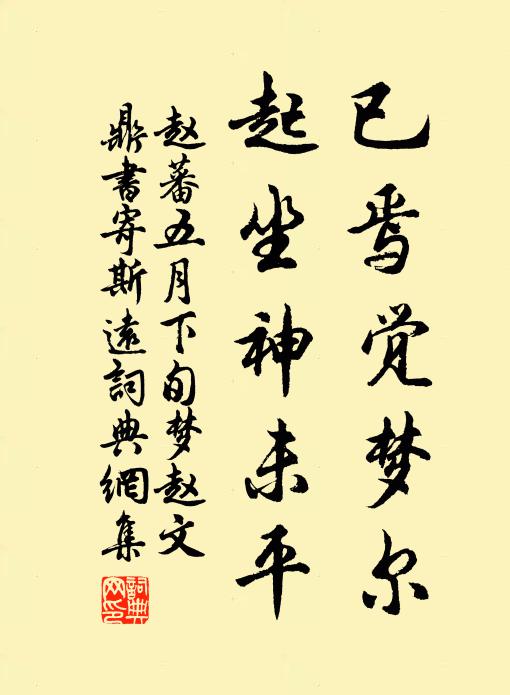 已焉觉梦尔
起坐神未平
赵蕃五月下旬梦赵文
鼎书寄斯远词典網集
詞典网印